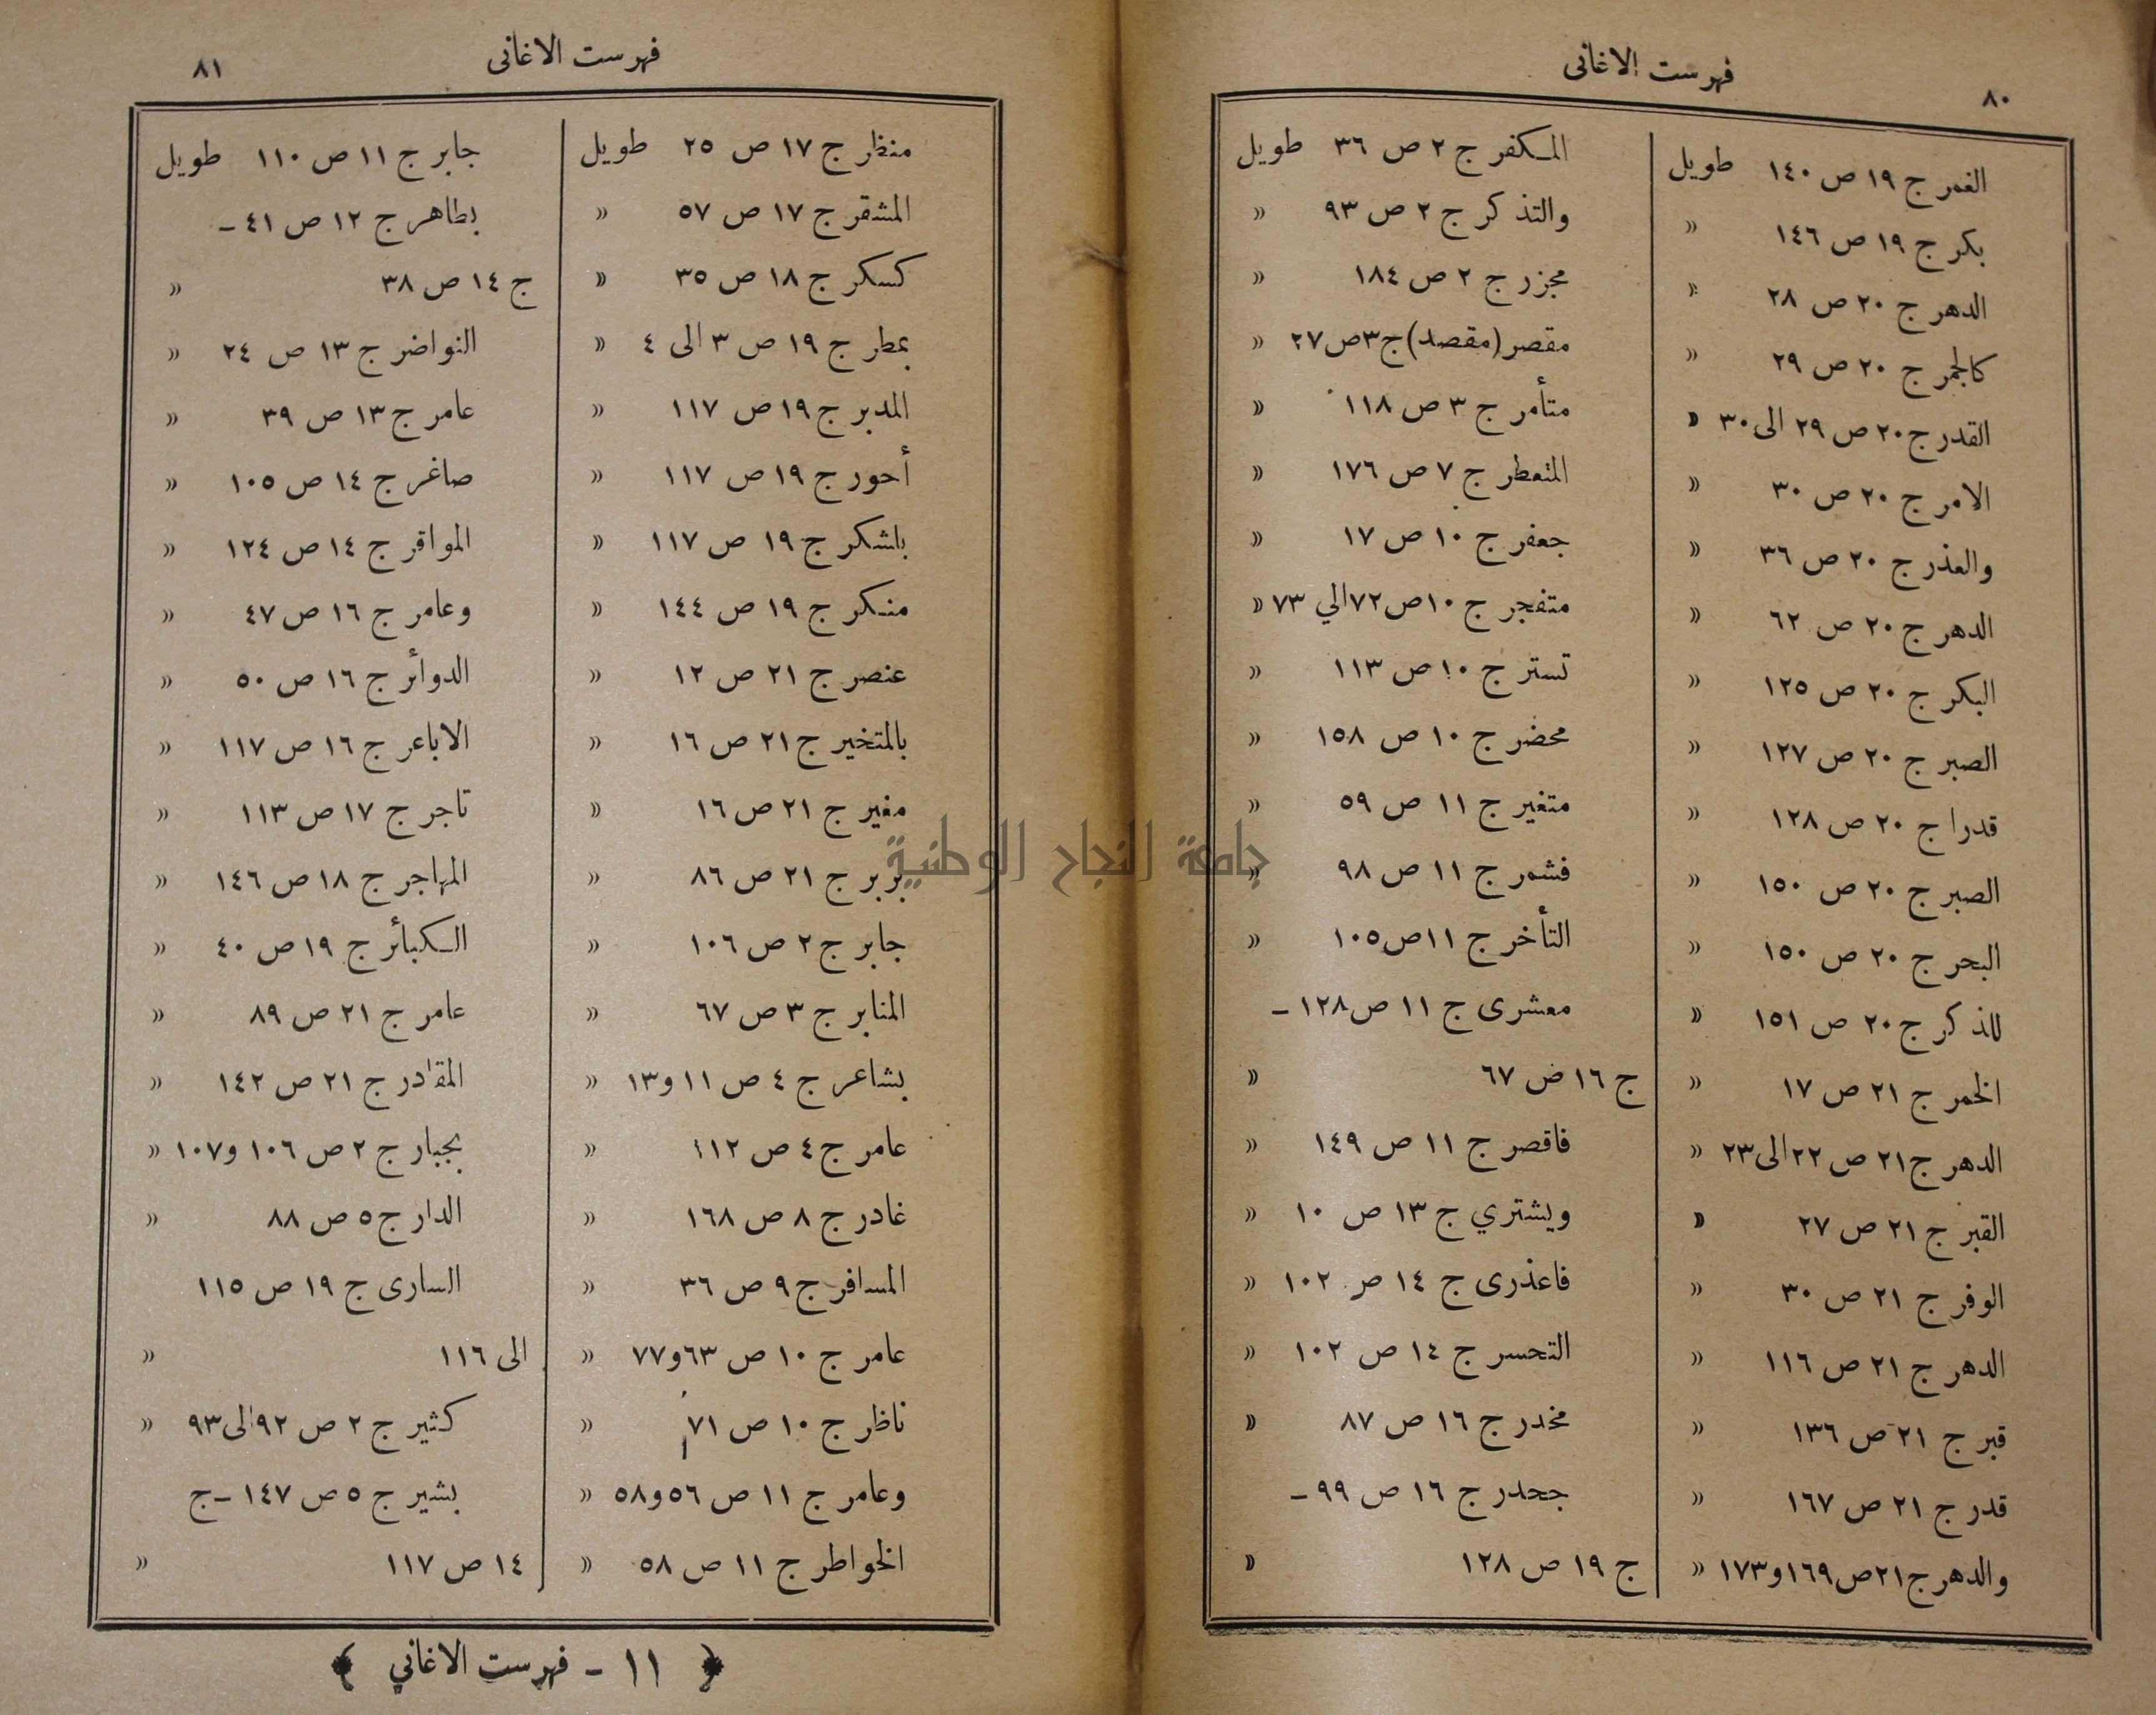 ٨٠
فهرست الاغانى
الغمر ج ١٩ ص ١٤٠ طويل
بكر ج ١٩ ص ١٤٦ »
الدهر ج ٢٠ ص ٢٨ »
كالجمر ج ٢٠ ص ٢٩ »
القدر ج ٢٠ ص ٢٩ الى ٣٠ »
الامر ج ٢٠ ص ٣٠ »
والعذر ج ٢٠ ص ٣٦ »
الدهر ج ٢٠ ص ٦٢ »
البكر ج ٢٠ ص ١٢٥ »
الصبر ج ٢٠ ص ١٢٧ »
قدرا ج ٢٠ ص ١٢٨ »
الصبر ج ٢٠ ص ١٥٠ »
البحر ج ٢٠ ص ١٥٠ »
للذكر ج ٢٠ ص ١٥١ »
الخمر ج ٢١ ص ١٧ »
الدهر ج ٢١ ص ٢٢ الى ٢٣ »
القبر ج ٢١ ص ٢٧ »
الوفر ج ٢١ ص ٣٠ »
الدهر ج ٢١ ص ١١٦ »
قبر ج ٢١ ص ١٣٦ »
قدر ج ٢١ ص ١٦٧ »
والدهر ج ٢١ ص ١٦٩ و ١٧٣ »
المكفر ج ٢ ص ٣٦ طويل
والتذكر ج ٢ ص ٩٣ »
مجزر ج ٢ ص ١٨٤ »
مقصر (مقصد) ج ٣ ص ٢٧ »
متأمر ج ٣ ص ١١٨ »
المتعطر ج ٧ ص ١٧٦ »
جعفر ج ١٠ ص ١٧ »
متفجر ج ١٠ ص ٧٢ الي ٧٣ »
تستر ج ١٠ ص ١١٣ »
محضر ج ١٠ ص ١٥٨ »
متغير ج ١١ ص ٥٩ »
فشمر ج ١١ ص ٩٨ »
التأخر ج ١١ ص ١٠٥ »
معشرى ج ١١ ص ١٢٨ -
ج ١٦ ص ٦٧ »
فاقصر ج ١١ ص ١٤٩ »
ويشتري ج ١٣ ص ١٠ »
فاعذرى ج ١٤ ص ١٠٢ »
التحسر ج ١٤ ص ١٠٢ »
مخدر ج ١٦ ص ٨٧ »
جحدر ج ١٦ ص ٩٩ -
ج ١٩ ص ١٢٨ »
فهرست الاغانى
٨١
منظر ج ١٧ ص ٢٥ طويل
المشقر ج ١٧ ص ٥٧ »
كسكر ج ١٨ ص ٣٥ »
بمطر ج ١٩ ص ٣ الى ٤ »
المدبر ج ١٩ ص ١١٧ »
أحور ج ١٩ ص ١١٧ »
باشكر ج ١٩ ص ١١٧ »
منكر ج ١٩ ص ١٤٤ »
عنصر ج ٢١ ص ١٢ »
بالمتخير ج ٢١ ص ١٦ »
مغير ج ٢١ ص ١٦ »
بربر ج ٢١ ص ٨٦ »
جابر ج ٢ ص ١٠٦ »
المنابر ج ٣ ص ٦٧ »
بشاعر ج ٤ ص ١١ و ١٣ »
عامر ج ٤ ص ١١٢ »
غادر ج ٨ ص ١٦٨ »
المسافر ج ٩ ص ٣٦ »
عامر ج ١٠ ص ٦٣ و ٧٧ »
ناظر ج ١٠ ص ٧١ »
وعامر ج ١١ ص ٥٦ و ٥٨ »
الخواطر ج ١١ ص ٥٨ »
جابر ج ١١ ص ١١٠ طويل
بطاهر ج ١٢ ص ٤١ -
ج ١٤ ص ٣٨ »
النواضر ج ١٣ ص ٢٤ »
عامر ج ١٣ ص ٣٩ »
صاغر ج ١٤ ص ١٠٥ »
المواقر ج ١٤ ص ١٢٤ »
وعامر ج ١٦ ص ٤٧ »
الدوائر ج ١٦ ص ٥٠ »
الاباعر ج ١٦ ص ١١٧ »
تاجر ج ١٧ ص ١١٣ »
المهاجر ج ١٨ ص ١٤٦ »
الكبائر ج ١٩ ص ٤٠ »
عامر ج ٢١ ص ٨٩ »
المقادر ج ٢١ ص ١٤٢ »
بجبار ج ٢ ص ١٠٦ و ١٠٧ »
الدار ج ٥ ص ٨٨ »
السارى ج ١٩ ص ١١٥
الى ١١٦ »
كثير ج ٢ ص ٩٢ الى ٩٣ »
بشير ج ٥ ص ١٤٧ - ج
١٤ ص ١١٧ »
﴿ ١١ - فهرست الاغاني ﴾
جامعة النجاح الوطنية